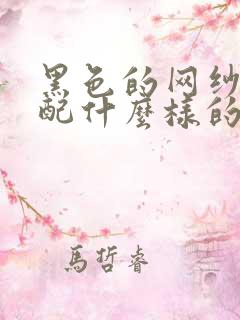 黑色的网纱
配什麼樣的
馬哲睿